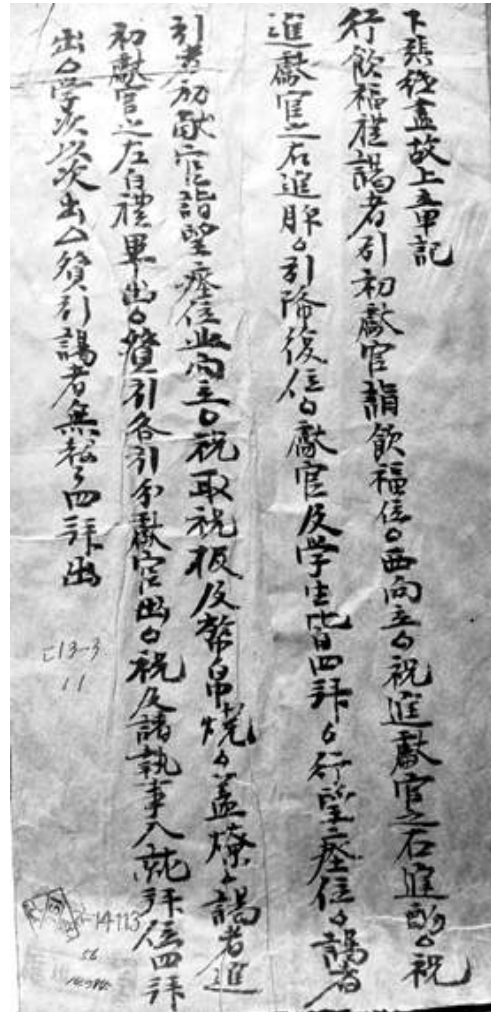 下張從盡故上章記
行飮福禮謁者引初獻官詣飮福位○西向立○祝進獻官之右進酌○祝
進獻官之右進胙○引降復位○獻官及學生皆四拜○行望瘞位○謁者
引初献官詣望瘞位北向立○祝取祝板及幣帛燒○蓋燎○謁者進
初獻官之左白禮畢出○贊引各引分獻官出○祝及諸執事入就拜位四拜
出○學次以次出○贊引謁者無松다四拜出
13-3
11
-14113
56